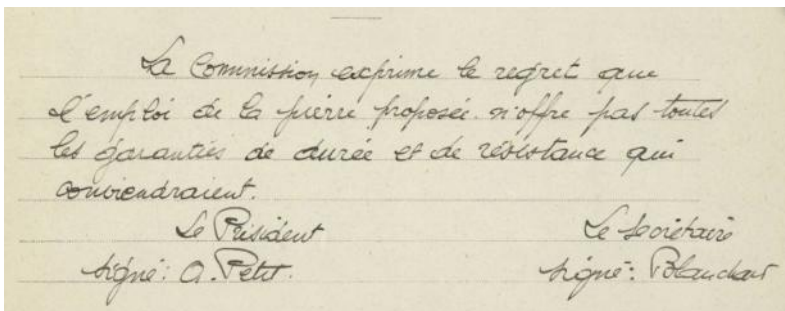 La Commission exprime le regret que
l'emploi de la pierre proposée n'offre pas toutes
les garanties de durée et de résistance qui
conviendraient.
Le Président Le Secrétaire
signé: A. Petit. signé: Blanchard